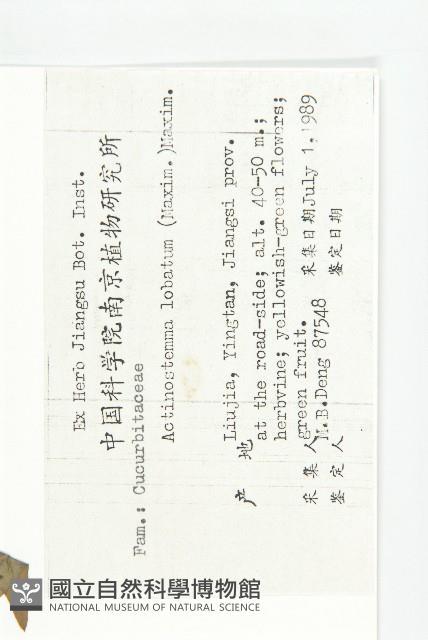 Ex Herb Jiangsu Bot. Inst.
中国科学院南京植物研究所
Fam.: Cucurbitaceae
Actinostemma lobatum (Maxim.)Maxim.
产地 Liujia, Yingtan, Jiangsi prov.
at the road-side; alt. 40-50 m.;
herbvine; yellowish-green flowers;
green fruit.
采集人 M.B.Deng 87548 采集日期 July 1, 1989
鉴定人 鉴定日期
國立自然科學博物館
NATIONAL MUSEUM OF NATURAL SCIENCE